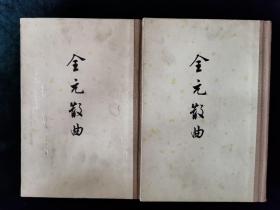 全元散曲
全元散曲